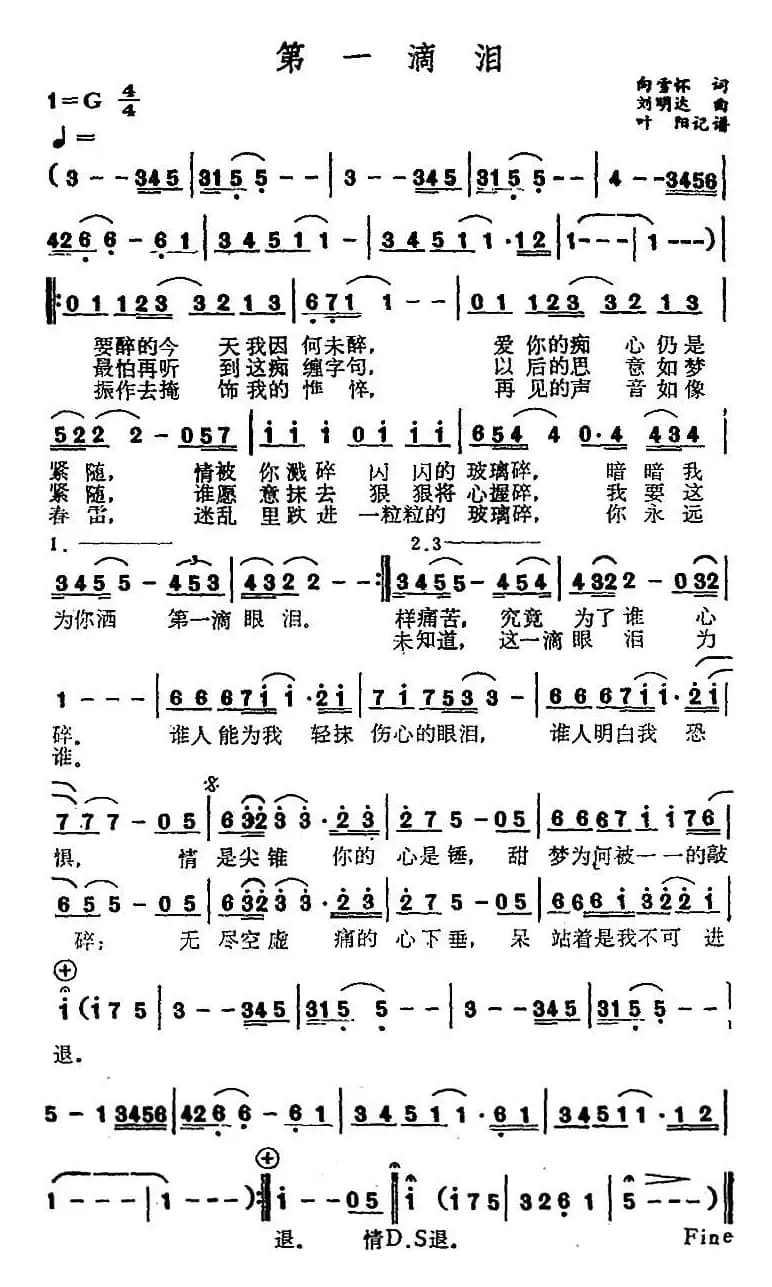 第一滴泪
向雪怀 词
1=G 4/4
刘明达 曲
叶 阳记谱
♩=
(3 - - 345 | 3155 5 - - | 3 - - 345 | 3155 5 - - | 4 - - 3456 |
4266 - 61 | 34511 - | 34511·12 | 1 - - - | 1 - - - )
‖: 01 123 3213 | 671 1 - - | 01 123 3213 |
要醉的今 天我因 何未醉, 爱你的痴 心仍是
最怕再听 到这痴 缠字句, 以后的思 意如梦
振作去掩 饰我的 憔 悴, 再见的声 音如像
522 2 - 057 | i i i 0i i i | 654 4 0·4 434 |
紧随, 情被 你溅碎 闪闪的玻璃碎, 暗暗我
紧随, 谁愿 意抹去 狠狠将心握碎, 我要这
春雷, 迷乱 里跌进 一粒粒的玻璃碎, 你永远
1. 2.3
345 5 - 453 | 432 2 - - :‖ 3455 - 454 | 4322 - 032 |
为你洒 第一滴眼泪。 样痛苦, 究竟 为了谁 心
未知道, 这一滴眼 泪 为
1 - - - | 6667i i·2i | 7i753 3 - | 6667ii·2i |
碎。 谁人能为我 轻抹 伤心的眼泪, 谁人明白我 恐
谁。
777 - 05 | 6323 3·23 | 275 - 05 | 6667i i76 |
惧, 情 是尖锥 你的 心是锤, 甜 梦为何被一一的敲
655 - 05 | 6323 3·23 | 275 - 05 | 666i 322i |
碎; 无 尽空虚 痛的 心下垂, 呆 站着是我不可进
i (i75 | 3 - - 345 | 3155 5 - - | 3 - - 345 | 3155 5 - |
退。
5 - 1 3456 | 4266 - 61 | 34511·61 | 34511·12 |
1 - - - | 1 - - - ) :‖ i - - 05 ‖ i (i75 | 3261 | 5 - - )
退。 情D.S退。 Fine